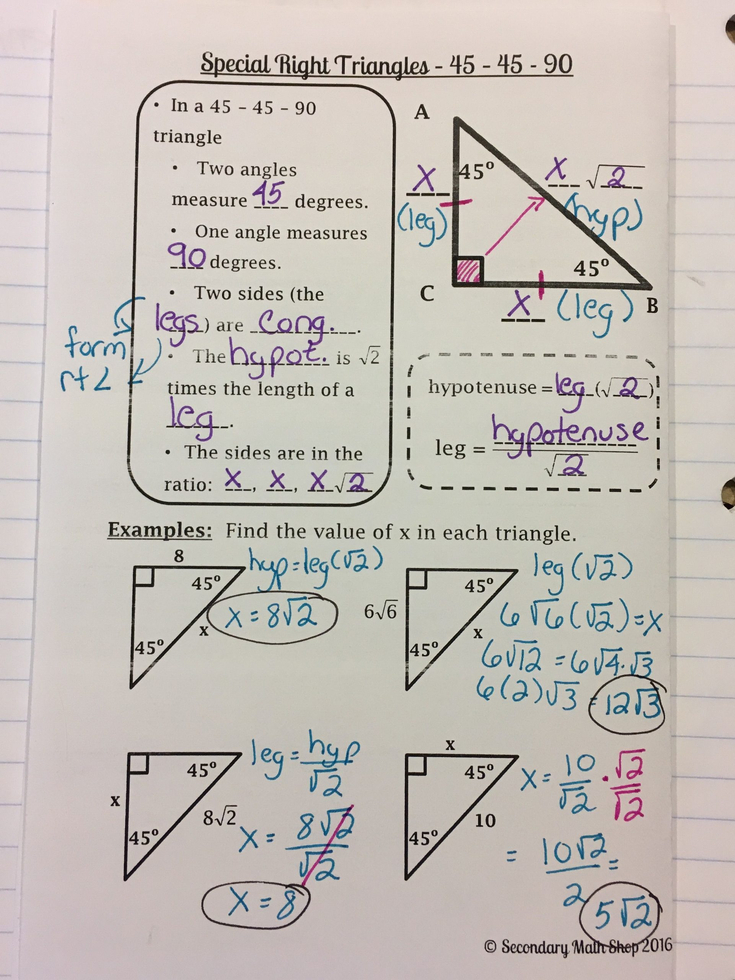 Special Right Triangles - 45 - 45 - 90
• In a 45 – 45 – 90
triangle
• Two angles
measure 45 degrees.
• One angle measures
90 degrees.
• Two sides (the
legs) are cong.
• The hypot. is √2
times the length of a
leg.
• The sides are in the
ratio: x, x, x√2
form
rt ∠
A
45°
x
(leg)
x √2
(hyp)
45°
C
x (leg)
B
hypotenuse = leg (√2)
leg = hypotenuse
√2
Examples: Find the value of x in each triangle.
8
45°
45°
x
hyp = leg(√2)
x = 8√2
6√6
45°
45°
x
leg(√2)
6√6(√2) = x
6√12 = 6√4·√3
6(2)√3 = 12√3
x
45°
45°
8√2
leg = hyp
√2
x = 8√2
√2
x = 8
x
45°
45°
10
x = 10/√2 · √2/√2
= 10√2/2 =
5√2
© Secondary Math Shop 2016